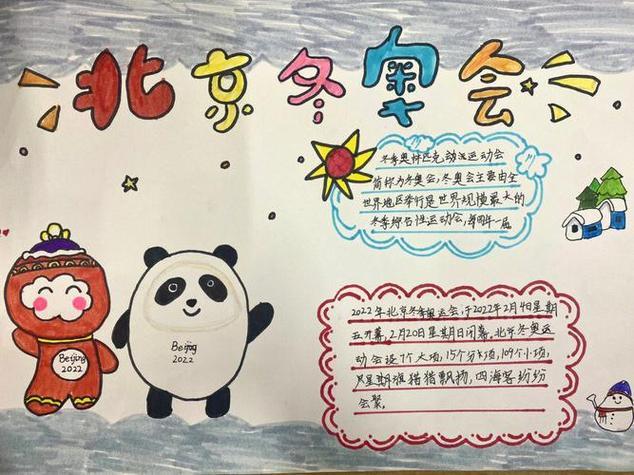 北京冬奥会
冬季奥林匹克动汉运动会
简称为冬奥会，冬奥会主要由全
世界地区举行是世界规模最大的
冬季综合性运动会，每四年一届
2022年北京冬季奥运会，于2022年2月4日星期
五开幕，2月20日星期日闭幕，北京冬奥运
动会设7个大项，15个分项，109个小项，
星期 猎猎飘扬，四海宾 纷纷
会聚。
Beijing
2022
Beijing
2022